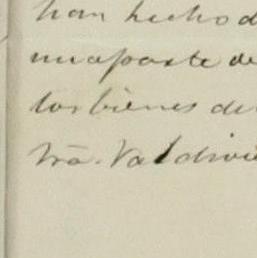 han hecho d
una parte de
los bienes de
Sra. Valdivie